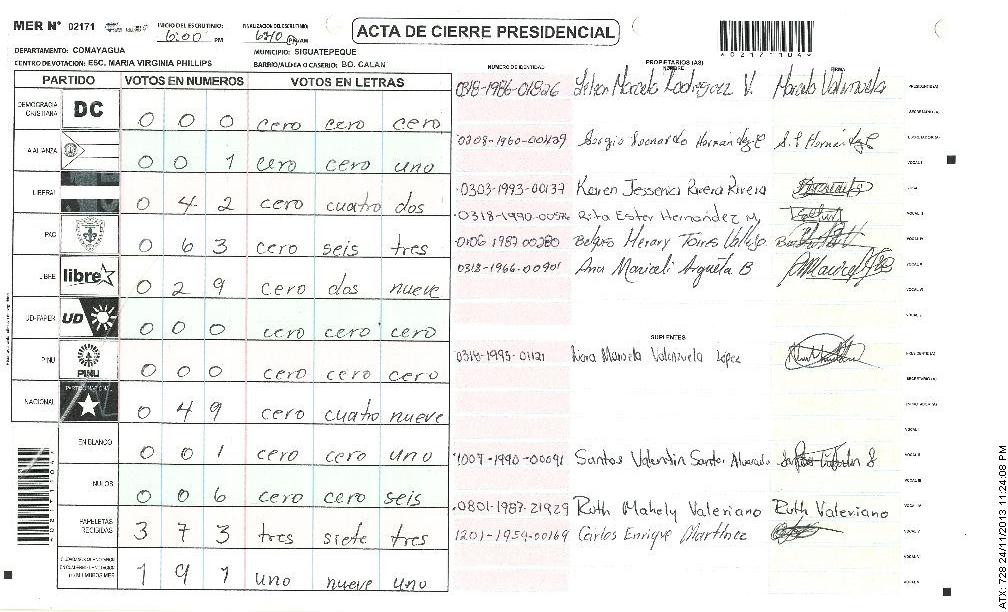 MER N° 02171 INICIO DEL ESCRUTINIO: 6:00 PM FINALIZACION DEL ESCRUTINIO: PM/AM
ACTA DE CIERRE PRESIDENCIAL
DEPARTAMENTO: COMAYAGUA MUNICIPIO: SIGUATEPEQUE
CENTRO DE VOTACION: ESC. MARIA VIRGINIA PHILLIPS BARRIO/ALDEA O CASERIO: BO. CALAN
PARTIDO VOTOS EN NUMEROS VOTOS EN LETRAS
DEMOCRACIA CRISTIANA DC 0 0 0 cero cero cero
ALIANZA 0 0 1 cero cero uno
LIBERAL 0 4 2 cero cuatro dos
PAC 0 6 3 cero seis tres
LIBRE libre 0 2 9 cero dos nueve
UD-FAPER UD 0 0 0 cero cero cero
PINU PINU 0 0 0 cero cero cero
NACIONAL 0 4 9 cero cuatro nueve
EN BLANCO 0 0 1 cero cero uno
NULOS 0 0 6 cero cero seis
PAPELETAS RECIBIDAS 3 7 3 tres siete tres
1 9 1 uno nueve uno
NUMERO DE IDENTIDAD PROPIETARIOS (AS) NOMBRE FIRMA
Marcelo Valenzuela PRESIDENTE(A)
SECRETARIO(A)
Sergio Leonardo Hernandez E S. L Hernández E ESCRUTADOR(A)
VOCAL I
0303-1993-00137 Karen Jessenia Rivera Rivera
Rita Ester Hernandez M,
0106 1987 00280 Torres Vallejo
0318-1966-00901 Ana Mariceli Argueta B
SUPLENTES
0318-1995-01121 Manuela Valenzuela López PRESIDENTE(A)
SECRETARIO(A)
ESCRUTADOR(A)
VOCAL I
1007-1990-00091 Santos Valentin Santos Alvarado
0801-1987-21929 Ruth Mahely Valeriano Ruth Valeriano
1201-1959-00169 Carlos Enrique Martínez
ATX: 728 24/11/2013 11:24:08 PM